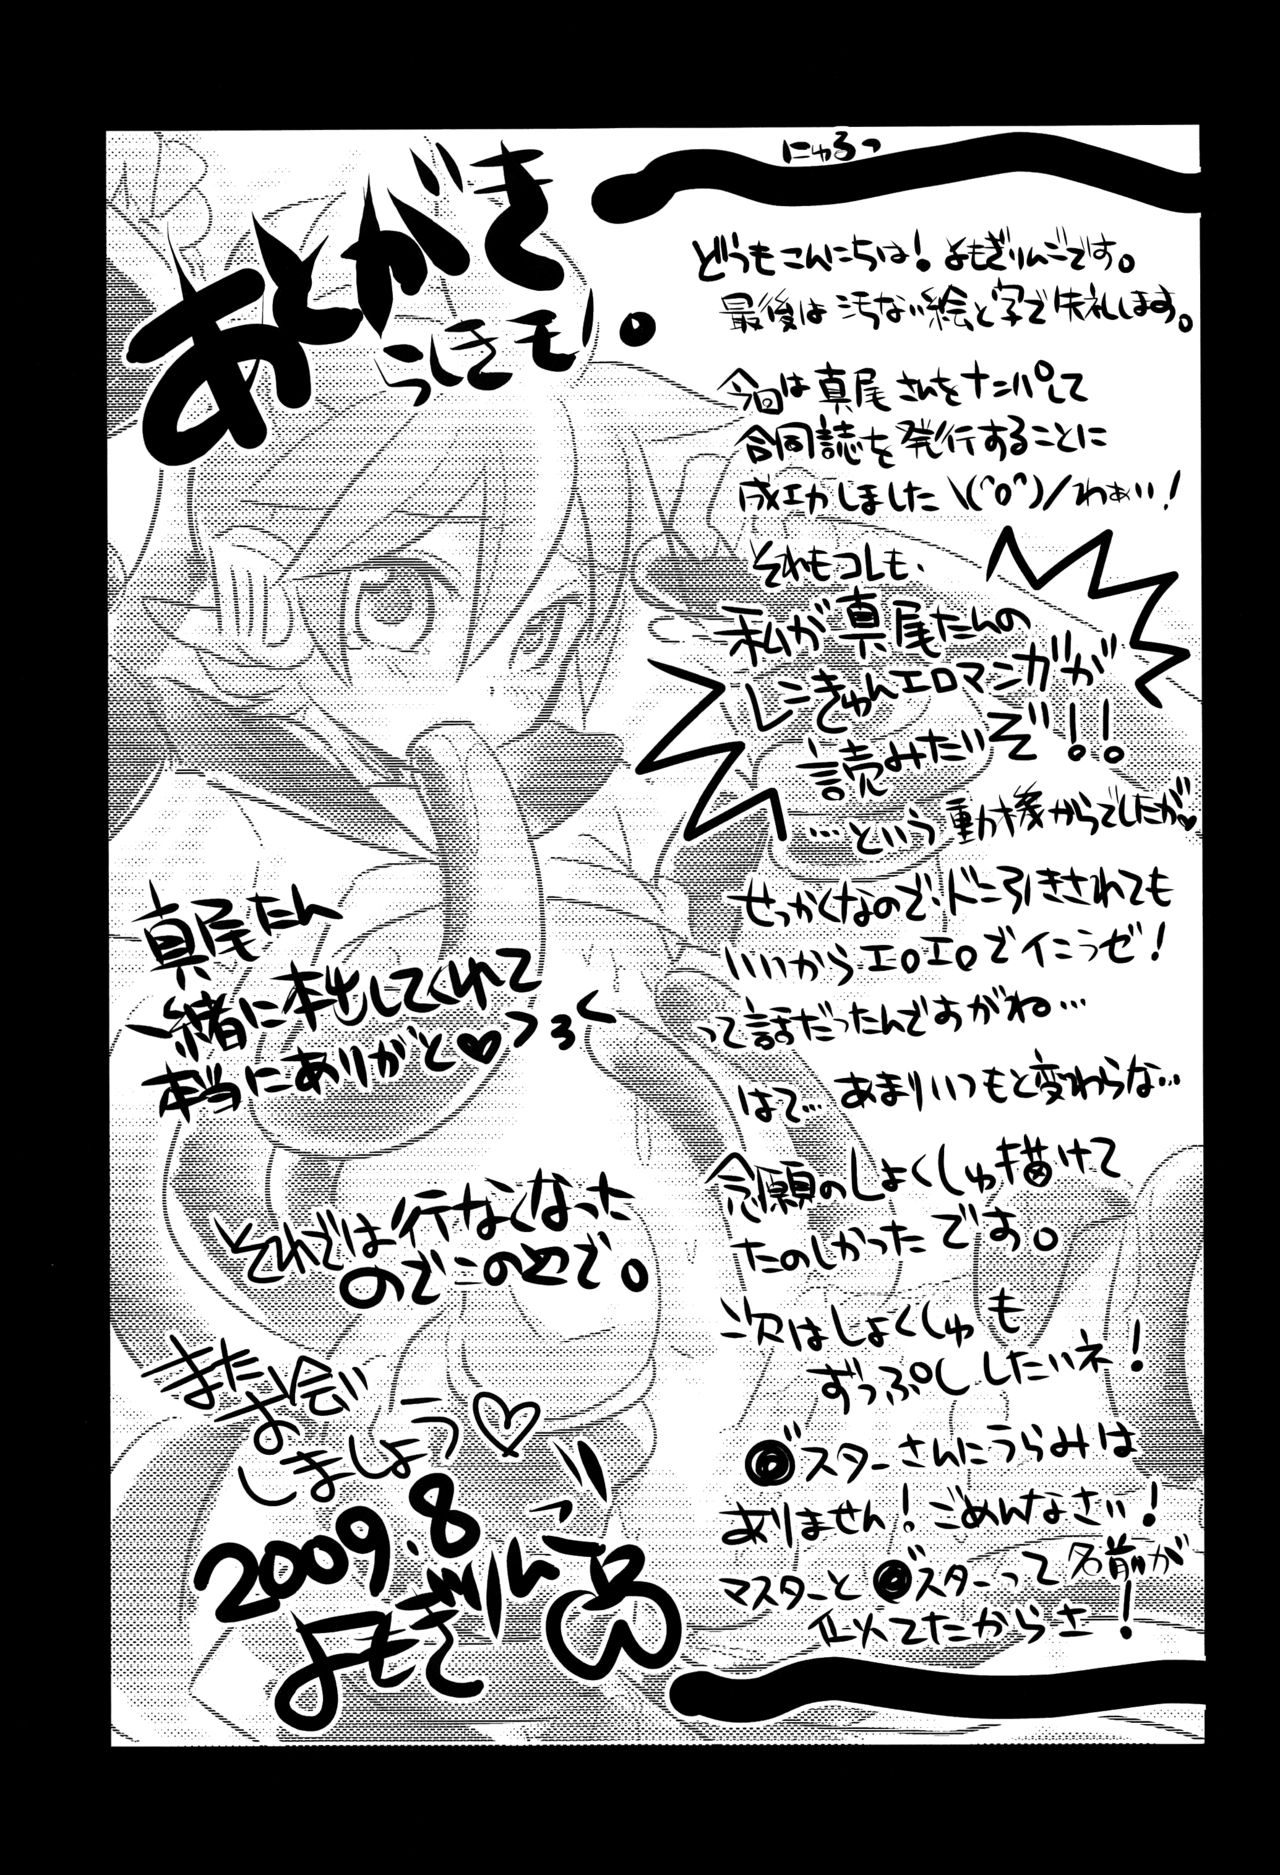 あとがき
らしきモノ。
にゅるっ
どうもこんにちは！よもぎりんごです。
最後は汚ない絵と字で失礼します。
今回は真尾さんをナンパして
合同誌を発行することに
成功しました\(^o^)/わぁい！
それもコレも、
私が真尾たんの
レンきゅんエロマンガが
読みたいぞ！！
…という動機からでしたが♥
せっかくなので、ドン引きされても
いいからエロエロでイこうぜ！
って話だったんですがね…
はて…あまりいつもと変わらな…
念願のしょくしゅ描けて
たのしかったです。
次はしょくしゅも
ずっぷししたいネ！
◎゛スターさんにうらみは
ありません！ごめんなさい！
マスターと◎゛スターって名前が
似てたからさ！
真尾たん
一緒に本出してくれて
本当にありがと♡つろく
それでは行なくなった
のでこのへんで。
また
お会い
しましょう♡
2009.8
よもぎりんご